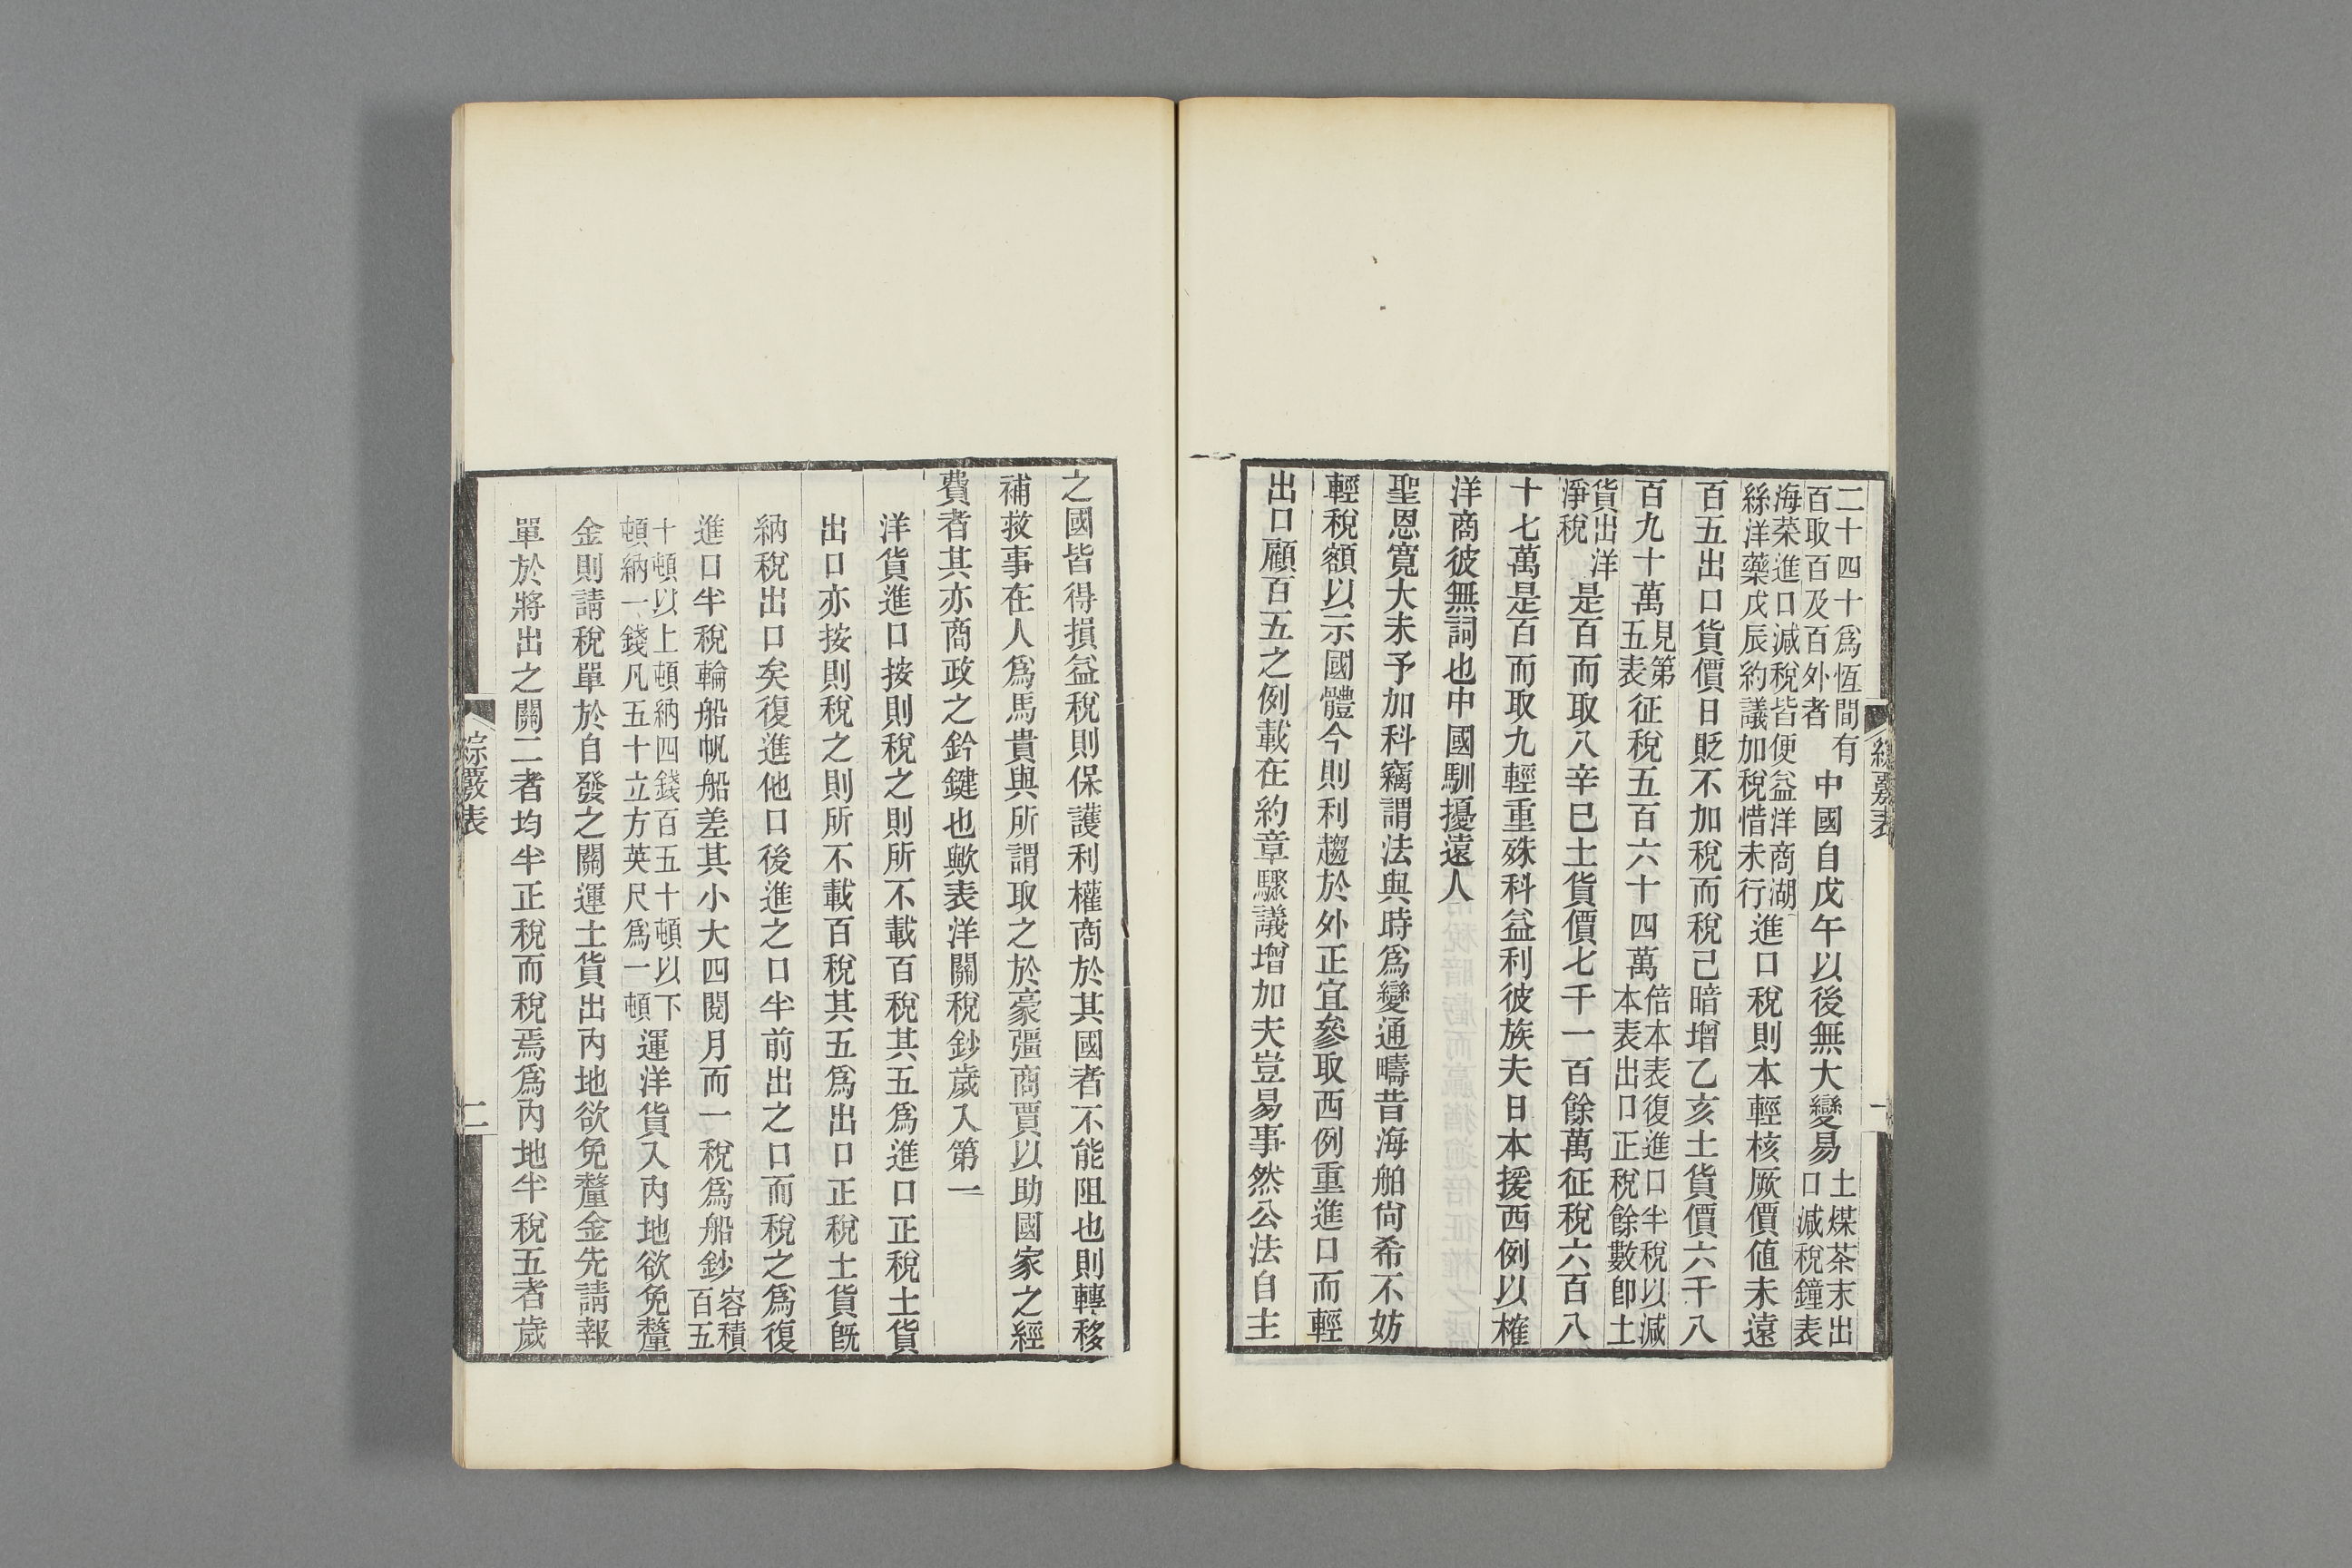 二十四十爲恆間有
百取百及百外者
中國自戊午以後無大變易
土煤茶末出
口減稅鐘表
海菜進口減稅皆便益洋商湖
絲洋藥戊辰約議加稅惜未行
進口稅則本輕核厥價値未遠
百五出口貨價日貶不加稅而稅已暗增乙亥土貨價六千八
百九十萬
見第
五表
征稅五百六十四萬
倍本表復進口半稅以減
本表出口正稅餘數卽土
貨出洋
淨稅
是百而取八辛巳土貨價七千一百餘萬征稅六百八
十七萬是百而取九輕重殊科益利彼族夫日本援西例以榷
洋商彼無詞也中國馴擾遠人
聖恩寬大未予加科竊謂法與時爲變通疇昔海舶尙希不妨
輕稅額以示國體今則利趨於外正宜參取西例重進口而輕
出口顧百五之例載在約章驟議增加夫豈易事然公法自主
綜覈表
一
之國皆得損益稅則保護利權商於其國者不能阻也則轉移
補救事在人爲馬貴與所謂取之於豪彊商賈以助國家之經
費者其亦商政之鈐鍵也歟表洋關稅鈔歲入第一
洋貨進口按則稅之則所不載百稅其五爲進口正稅土貨
出口亦按則稅之則所不載百稅其五爲出口正稅土貨旣
納稅出口矣復進他口後進之口半前出之口而稅之爲復
進口半稅輪船帆船差其小大四閱月而一稅爲船鈔
容積
百五
十頓以上頓納四錢百五十頓以下
頓納一錢凡五十立方英尺爲一頓
運洋貨入內地欲免釐
金則請稅單於自發之關運土貨出內地欲免釐金先請報
單於將出之關二者均半正稅而稅焉爲內地半稅五者歲
綜覈表
二